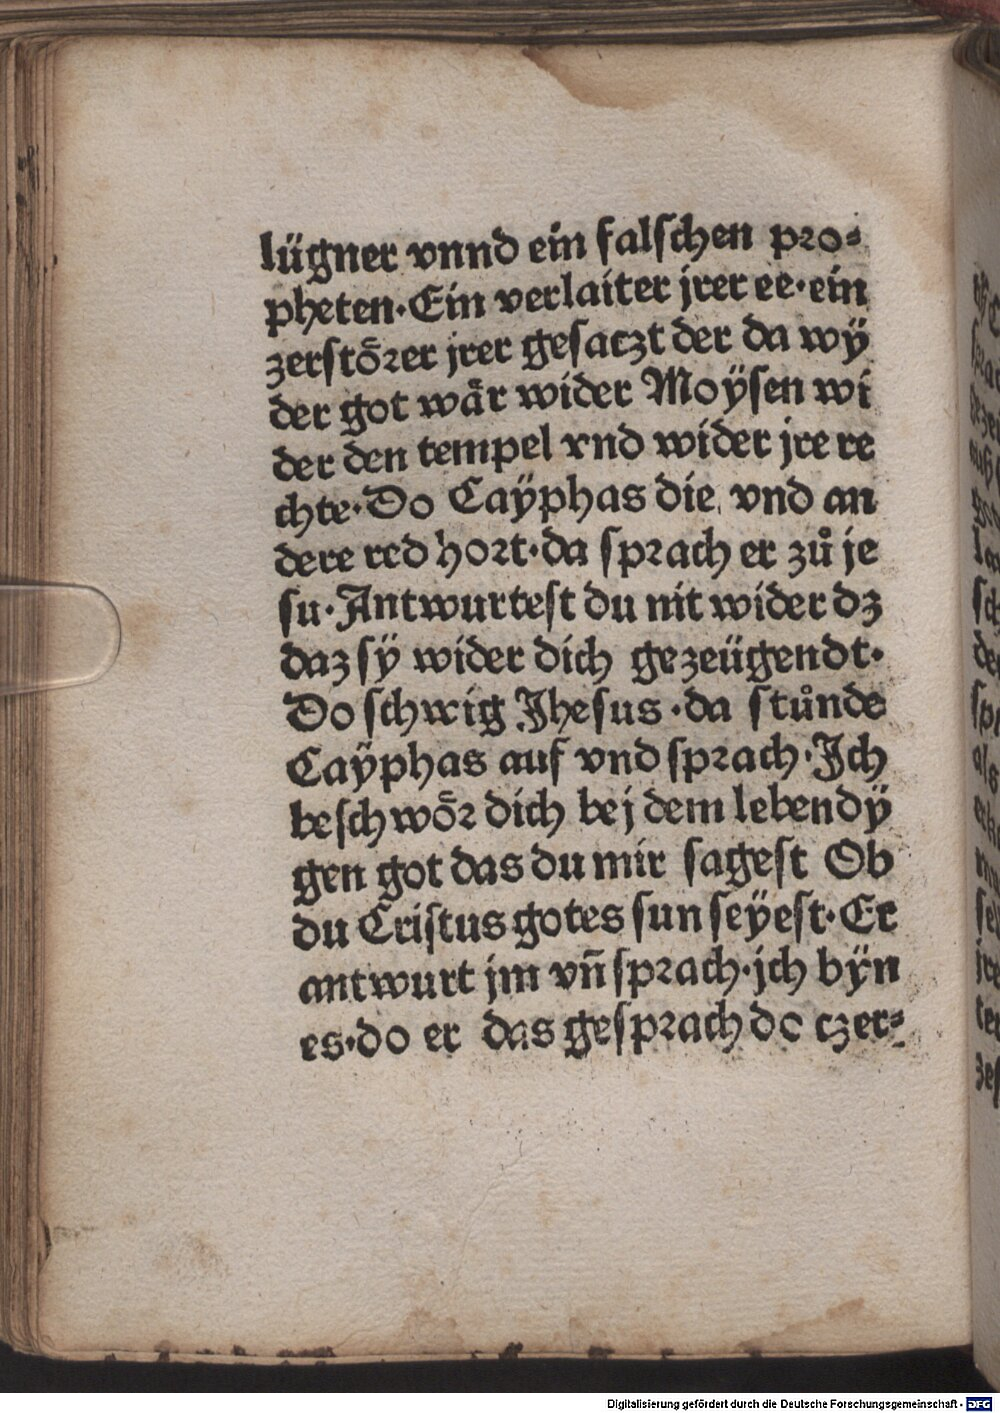 lügner vnnd ein falſchen pro⸗
pheten·Ein verlaiter jrer ee·ein
zerſtoͤrer jrer geſaczt der da wÿ
der got waͤr wider Moÿſen wi
der den tempel vnd wider jre re
chte·Do Caÿphas die vnd an
dere red hort·da ſprach er zů je
ſu·Antwurteſt du nit wider dz
daz ſÿ wider dich gezeügendt·
Do ſchwig Jheſus·da ſtůnde
Caÿphas auf vnd ſprach·Jch
beſchwoͤr dich bej dem lebendÿ
gen got das du mir ſageſt Ob
du Criſtus gotes ſun ſeÿeſt·Er
antwurt jm vñ ſprach·jch bÿn
es·do er das geſprach do czer⸗
Digitalisierung gefördert durch die Deutsche Forschungsgemeinschaft - DFG